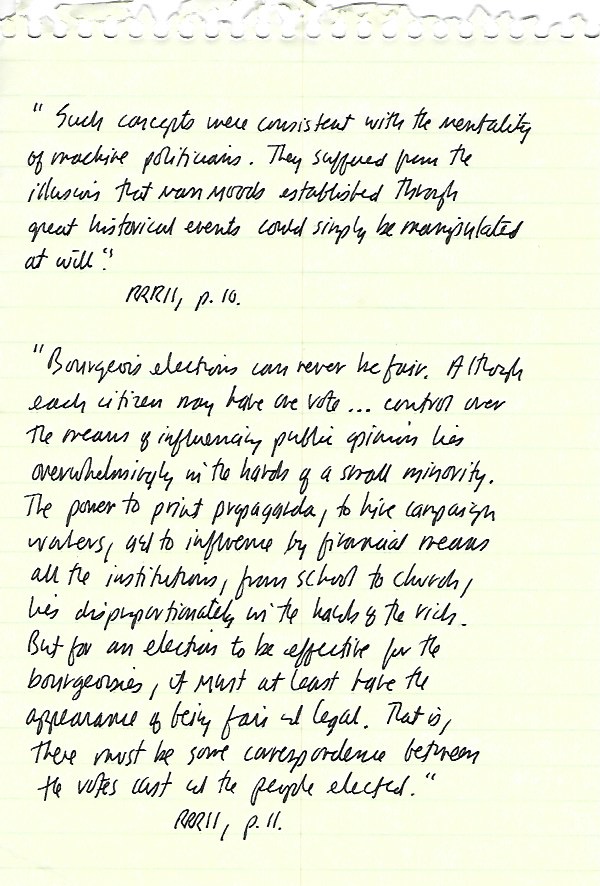 "Such concepts were consistent with the mentality
of machine politicians. They suffered from the
illusion that mass moods established through
great historical events could simply be manipulated
at will."
RRRII, p. 10.
"Bourgeois elections can never be fair. Although
each citizen may have one vote... control over
the means of influencing public opinion lies
overwhelmingly in the hands of a small minority.
The power to print propaganda, to hire campaign
workers, and to influence by financial means
all the institutions, from school to church,
lies disproportionately in the hands of the rich.
But for an election to be effective for the
bourgeoisies, it must at least have the
appearance of being fair and legal. That is,
there must be some correspondence between
the votes cast and the people elected."
RRRII, p. 11.